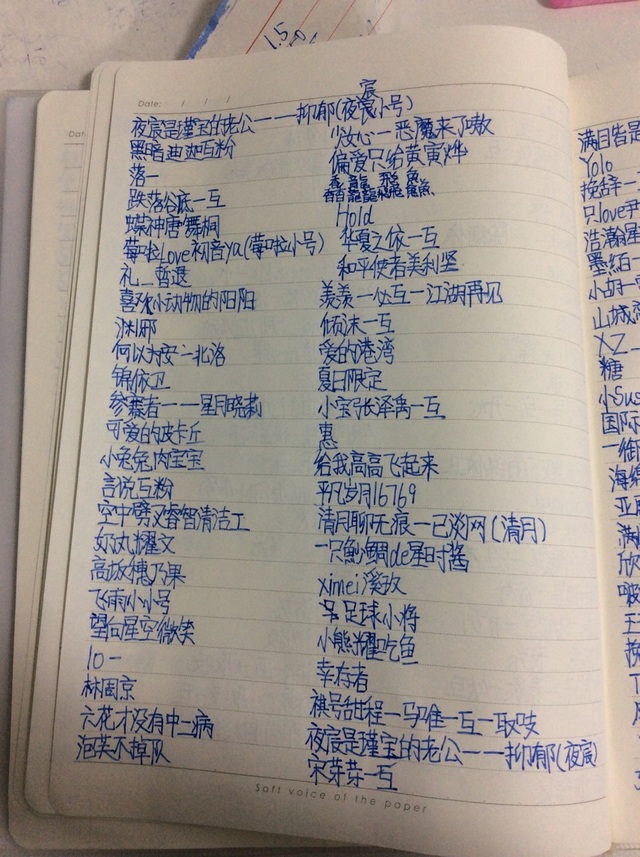 1.5
Date: / / /
宸
夜宸是瑾宝的老公——抑郁(夜宸小号)
黑暗迪迦互粉
落一
跌落谷底一互
蝶神唐舞桐
莓啦Love初音Ya(莓啦小号)
礼_暂退
喜欢小动物的阳阳
渊邪
何以为安·北洛
锦依卫
参赛者——星月晓莉
可爱的皮卡丘
小兔兔肉宝宝
言说互粉
空中劈叉睿智清洁工
奶丸耀文
高坂穗乃果
飞雨小小号
望向星空微笑
10一
林周京
六花才没有中二病
泡芙不掉队
少女心一恶魔来了嗷
偏爱只给黄寅烨
Hold
华夏之依一互
和平使者美利坚
羡羡一必互一江湖再见
倾沫一互
爱的港湾
夏日限定
小宝张泽禹一互
惠
给我高高飞起来
平凡岁月16769
清月聊无痕一已淡网(清月)
一只鮑鲷de星时酱
ximei溪玫
足球小将
小熊耀吃鱼
幸存者
祺号甜程一马唯一互一取吱
夜宸是瑾宝的老公——抑郁(夜宸)
宋芽芽一互
Soft voice of the paper
满目皆是
Yolo
挽辞一
只love
浩瀚星
墨陌一
小胡一
山城
XZ
糖
小Sus
国际
一街